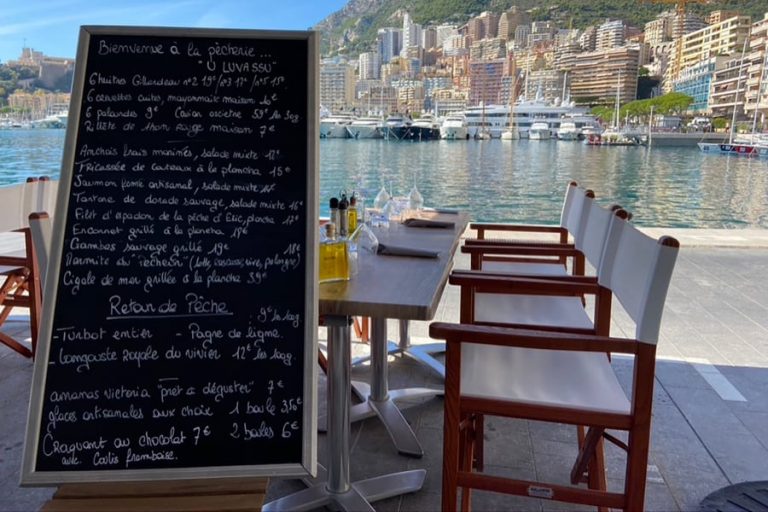 Bienvenue à la pêcherie ...
"U LUVASSU"
6 huîtres Gillardeau n°2 19€/n°3 17€/n°5 15€
6 crevettes cuites, mayonnaise maison 16€
6 palourdes 9€ Caviar oscietre 59€ les 30g
Rillette de thon rouge maison 7€
Anchois frais marinés, salade mixte 12€
Fricassée de couteaux à la plancha 15€
Saumon fumé artisanal, salade mixte
Tartare de dorade sauvage, salade mixte 16€
Filet d'espadon de la pêche d'Eric, plancha 17€
Encornet grillé à la plancha 19€
Gambas sauvage grillé 19€
Marmite du "pecheur" (lotte, 18€
Cigale de mer grillée à la plancha 39€
Retour de Pêche
9€ les 100g
- Turbot entier - Pagre de ligne
- Langouste Royale du vivier 12€ les 100g
ananas victoria "prêt à déguster" 7€
glaces artisanales aux choix 1 boule 3,50€
Craquant au chocolat 7€ 2 boules 6€
avec Coulis framboise.